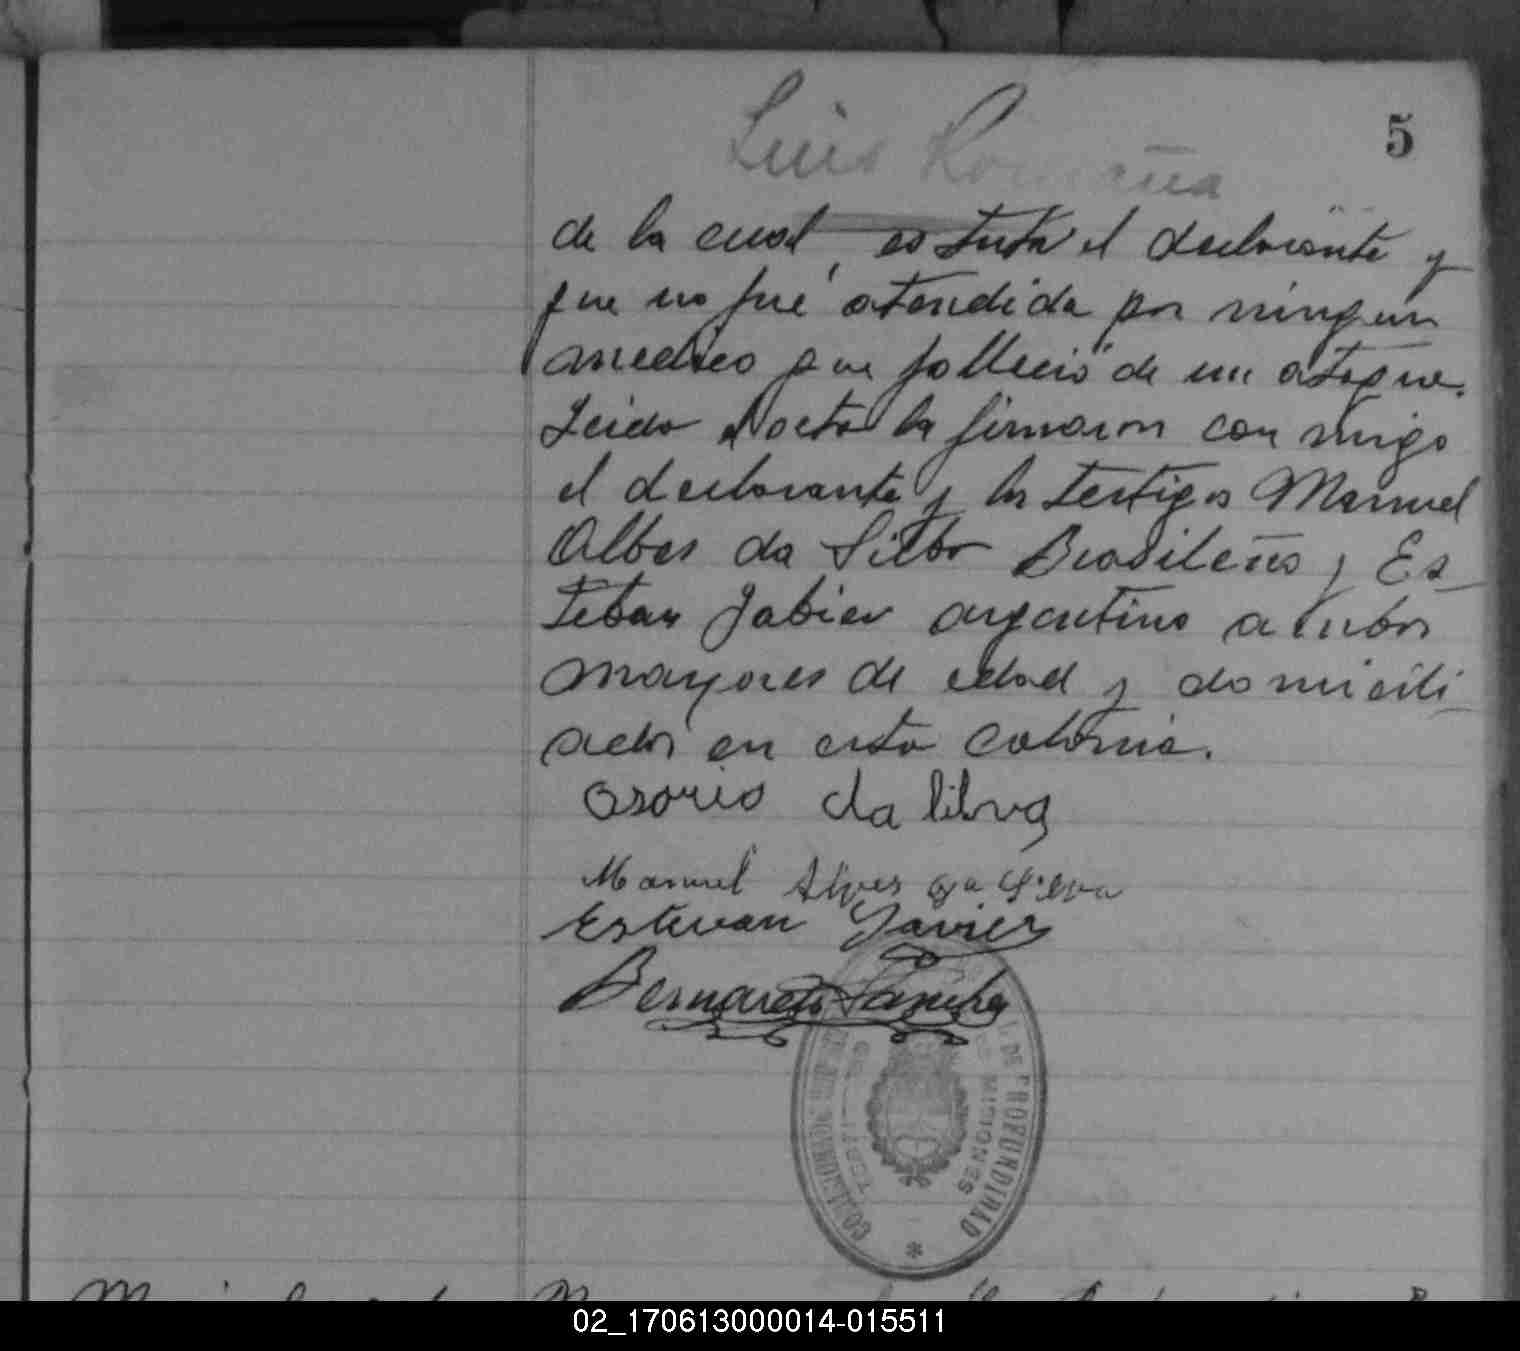 Luis Romaña
5
de la cual, es tuta el declarante y
que no fué atendida por ningun
medico que fallecio de un ataque.
Leido el acta la firmaron con migo
el declarante y los testigos Manuel
Albes da Silba Brasileño y Es
teban Jabier argentino ambos
mayores de edad y domicili
ados en esta colonia.
Osorio da silva
Manuel Alves da Silva
Estevan Javier
Bernardo Sanchez
DE PROFUNDIDAD
MISIONES
*
02_170613000014-015511